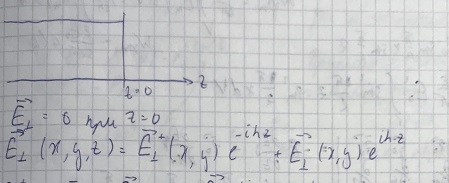 z
z=0
E⃗⊥ = 0 при z=0
E⃗⊥ (x, y, z) = E⃗⊥⁺ (x, y) e^{-ihz} + E⃗⊥⁻ (x, y) e^{ihz}